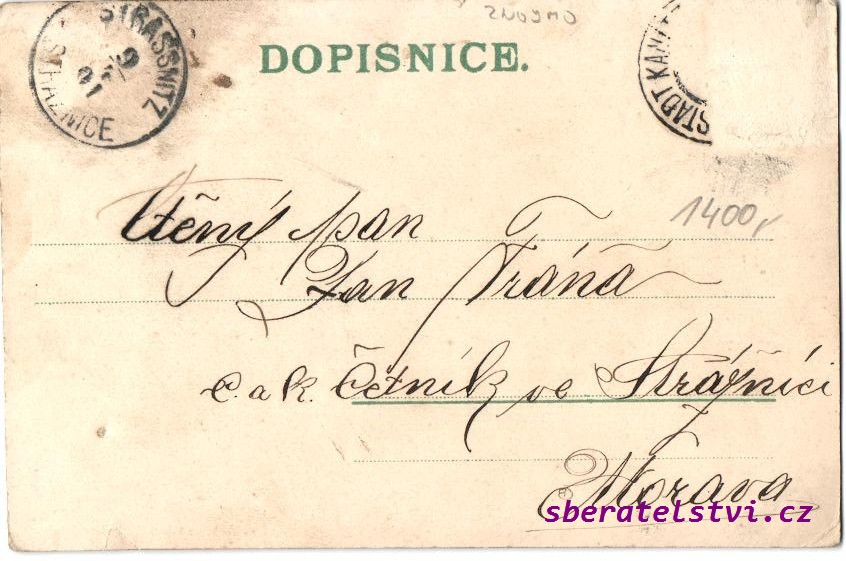 ZNOJMO
DOPISNICE.
STRASSNITZ
9
01
STRÁŽNICE
STADT KAN
1400,-
Ctěný pan
Jan Fráňa
c. a k. Četník ve Strážnici
Morava
sberatelstvi.cz